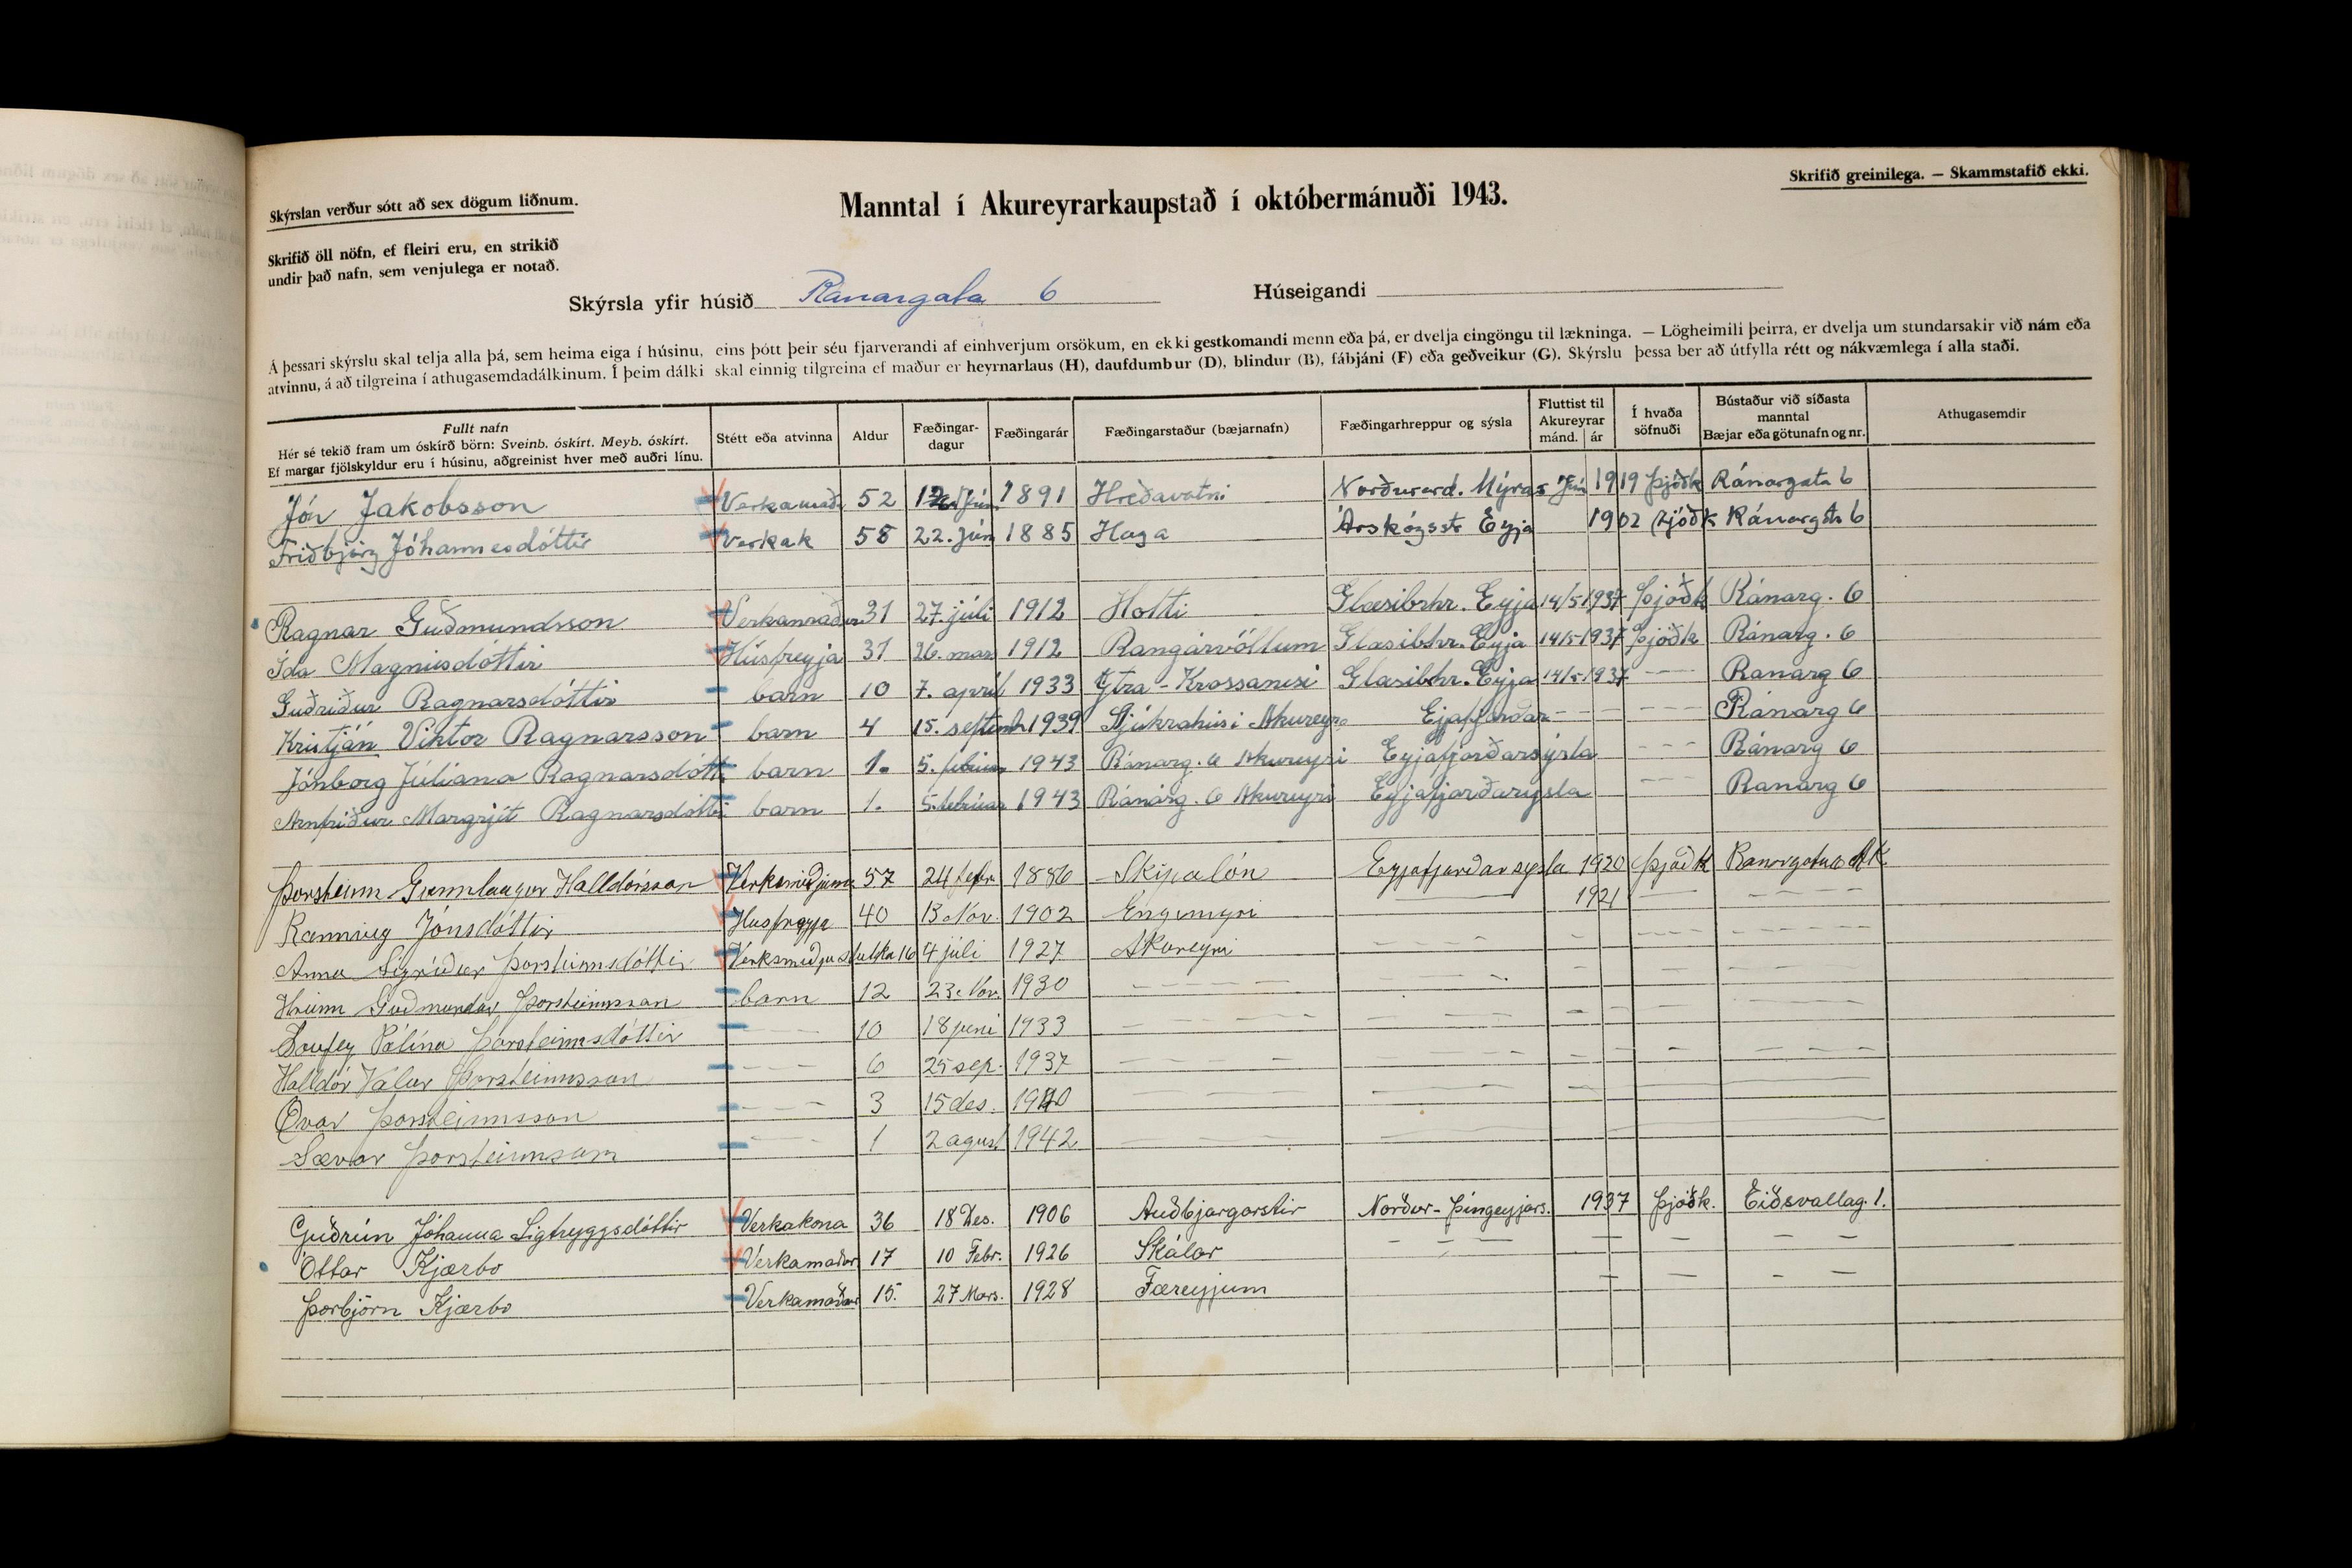 Skýrslan verður sótt að sex dögum liðnum.
Manntal í Akureyrarkaupstað í októbermánuði 1943.
Skrifið greinilega. — Skammstafið ekki.
Skrifið öll nöfn, ef fleiri eru, en strikið
undir það nafn, sem venjulega er notað.
Skýrsla yfir húsið Ránargata 6 Húseigandi
Á þessari skýrslu skal telja alla þá, sem heima eiga í húsinu, eins þótt þeir séu fjarverandi af einhverjum orsökum, en ekki gestkomandi menn eða þá, er dvelja eingöngu til lækninga. — Lögheimili þeirra, er dvelja um stundarsakir við nám eða
atvinnu, á að tilgreina í athugasemdadálkinum. Í þeim dálki skal einnig tilgreina ef maður er heyrnarlaus (H), daufdumbur (D), blindur (B), fábjáni (F) eða geðveikur (G). Skýrslu þessa ber að útfylla rétt og nákvæmlega í alla staði.
Fullt nafn
Hér sé tekið fram um óskírð börn: Sveinb. óskírt. Meyb. óskírt.
Ef margar fjölskyldur eru í húsinu, aðgreinist hver með auðri línu.
Stétt eða atvinna
Aldur
Fæðingar-
dagur
Fæðingarár
Fæðingarstaður (bæjarnafn)
Fæðingarhreppur og sýsla
Fluttist til
Akureyrar
mánd. ár
Í hvaða
söfnuði
Bústaður við síðasta
manntal
Bæjar eða götunafn og nr.
Athugasemdir
Jón Jakobsson Verkamað. 52 1891 Hreðavatni Norðurard. Mýras Jún 1919 Þjóðk Ránargata 6
Friðbjörg Jóhannesdóttir Verkak 58 22. jún 1885 Haga Árskógsstr Eyja 1902 Þjóðk Ránargata 6
Ragnar Guðmundsson Verkamaður 31 27. júlí 1912 Holti Glæsibhr. Eyja 14/5 1937 Þjóðk Ránarg. 6
Ída Magnúsdóttir Húsfreyja 31 26. mar 1912 Rangárvöllum Glæsibhr. Eyja 14/5 1937 Þjóðk Ránarg. 6
Guðríður Ragnarsdóttir barn 10 7. apríl 1933 Ytra-Krossanesi Glæsibhr. Eyja 14/5 1937 — Ránarg 6
Kristján Viktor Ragnarsson barn 4 15. septemb 1939 Sjúkrahúsi Akureyri Eyjafjarðar - - - - - Ránarg 6
Jónborg Júlíana Ragnarsdótti barn 1. 5. febrúar 1943 Ránarg. 6 Akureyri Eyjafjarðarsýsla - - - Ránarg 6
Arnfríður Margrjét Ragnarsdóttir barn 1. 5. febrúar 1943 Ránarg. 6 Akureyri Eyjafjarðarsýsla - - - Ranarg 6
Þorsteinn Gunnlaugur Halldórsson 57 24 febr. 1886 Skipalón Eyjafjarðarsysla 1920 Þjóðk Ranargatu 6 AK
Rannveig Jónsdóttir Husfreyja 40 13 Nov. 1902 Engimyri — 1921 — - - - -
Anna Sigríður Þorsteinsdóttir Verksmiðjustulka 16 4 júli 1927 Akureyri - - - - - - - -
Hreinn Guðmundur Þorsteinsson barn 12 23. Nóv. 1930 - - - - -
Laufey Pálína Þorsteinsdóttir - - - 10 18 juni 1933 - - - - -
Halldór Valur Þorsteinsson - - - 6 25 sep. 1937 - - - -
Ævar Þorsteinsson - - - 3 15 des. 1940 - - - -
Sævar Þorsteinsson - - - 1 2 agust 1942 - - - -
Guðrún Jóhanna Sigtryggsdóttir Verkakona 36 18 Des. 1906 Auðbjargarstir Norður-Þingeyjars. 1937 Þjóðk. Eiðsvallag. 1.
Óttar Kjærbo Verkamaður 17 10 Febr. 1926 Skálar - - - - - - -
Þorbjörn Kjærbo Verkamaður 15. 27 Mars. 1928 Færeyjum - - - -